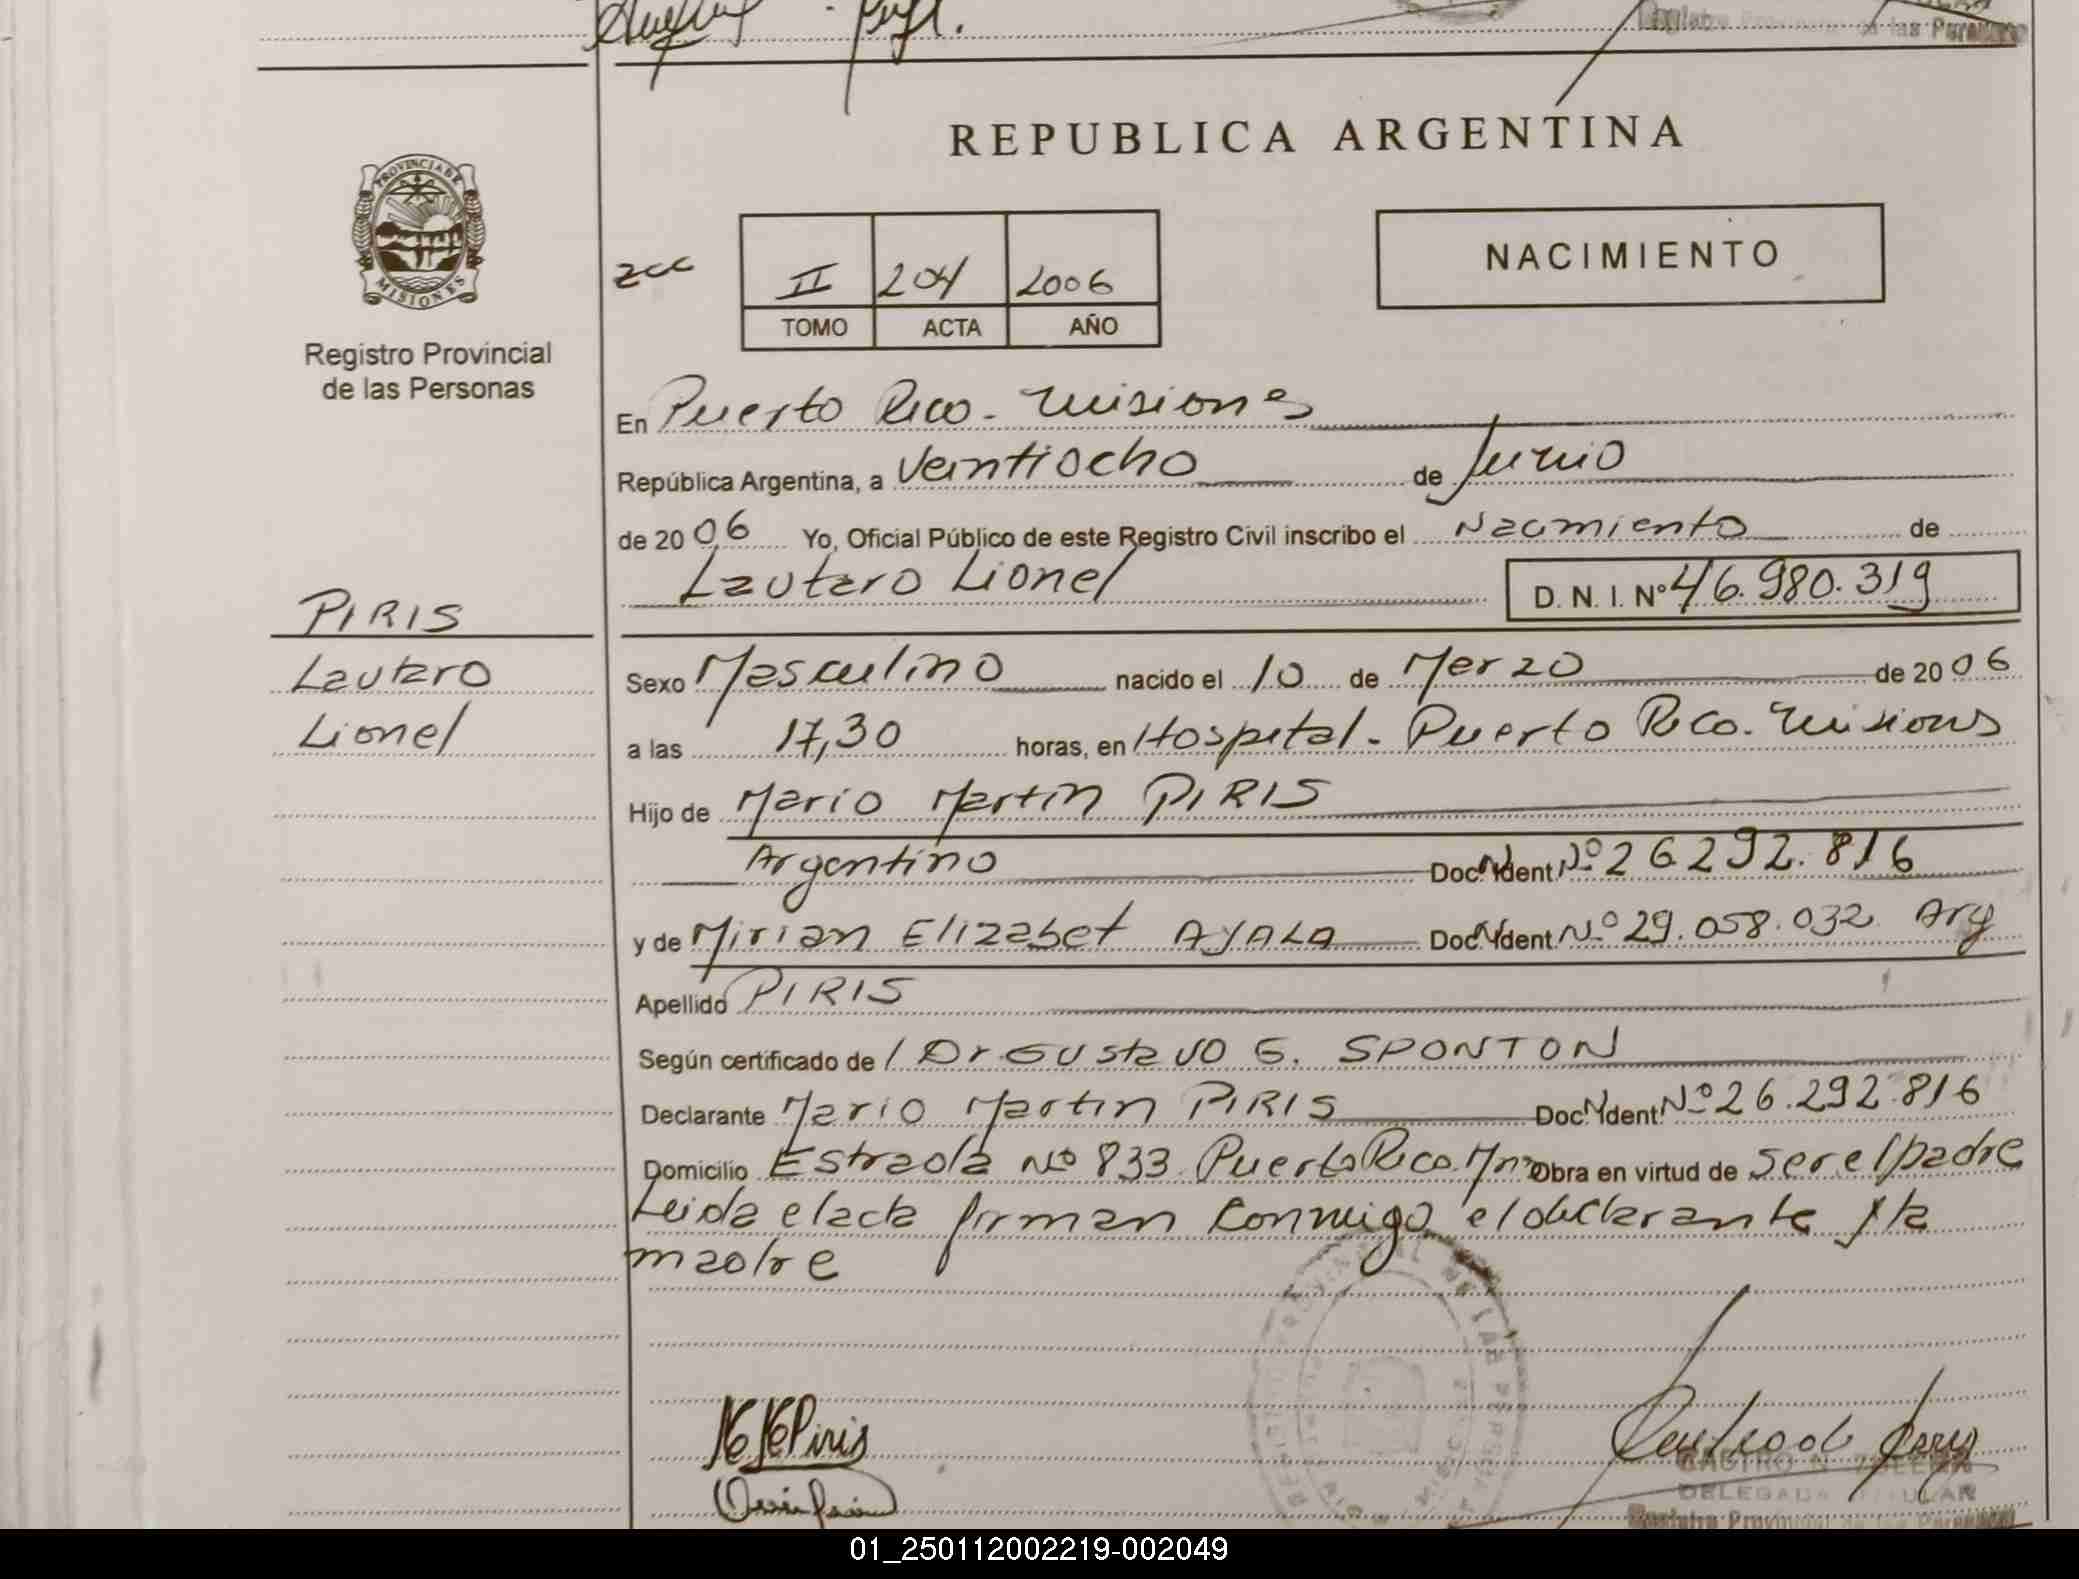 Registro Provincial de las Personas
REPUBLICA ARGENTINA
PROVINCIA DE
MISIONES
Registro Provincial
de las Personas
NACIMIENTO
II 204 2006
TOMO ACTA AÑO
En Puerto Rico - Misiones
República Argentina, a Veintiocho de Junio
de 2006 Yo, Oficial Público de este Registro Civil inscribo el Nacimiento de
Lautaro Lionel D. N. I. Nº 46.980.319
PIRIS
Lautaro
Lionel
Sexo Masculino nacido el 10 de Marzo de 2006
a las 17,30 horas, en Hospital - Puerto Rico. Misiones
Hijo de Mario Martin PIRIS
Argentino Doc. Ident. Nº 26.292.816
y de Mirian Elizabet AYALA Doc. Ident. Nº 29.058.032 Arg
Apellido PIRIS
Según certificado de / Dr Gustavo G. SPONTON
Declarante Mario Martin PIRIS Doc. Ident. Nº 26.292.816
Domicilio Estrada Nº 833 Puerto Rico. Mnes Obra en virtud de ser el padre
Leida el acta firman conmigo el declarante y la
madre
Piris
CASTRO N. ZULEMA
DELEGADA TITULAR
Registro Provincial de las Personas
01_250112002219-002049